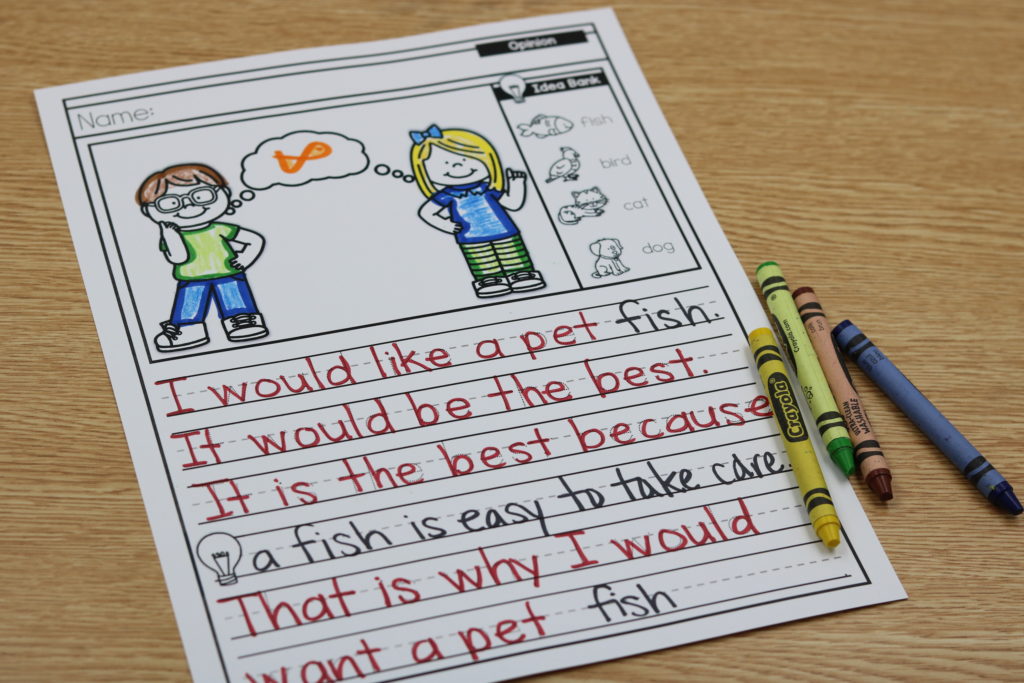 Opinion
Name:
Idea Bank
fish
bird
cat
dog
I would like a pet fish.
It would be the best.
It is the best because
a fish is easy to take care.
That is why I would
want a pet fish
Crayola